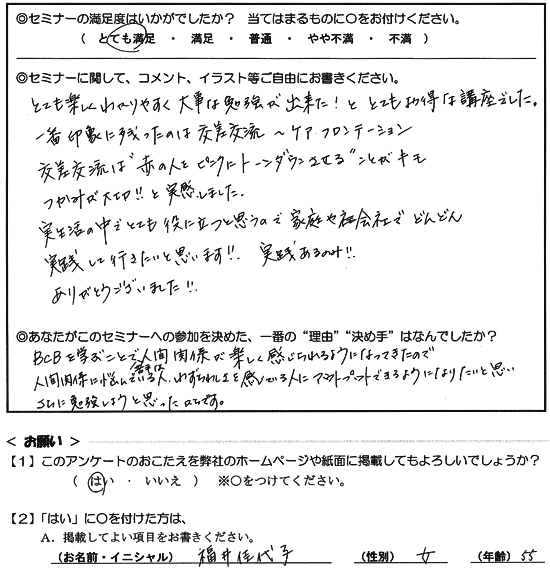 ◎セミナーの満足度はいかがでしたか？ 当てはまるものに○をお付けください。
（ とても満足 ・ 満足 ・ 普通 ・ やや不満 ・ 不満 ）
◎セミナーに関して、コメント、イラスト等ご自由にお書きください。
とても楽しくわかりやすく大事な勉強が出来た！と とてもお得な講座でした。
一番印象に残ったのは交差交流 〜ケア・フロンテーション
交差交流は"赤の人とピンクにトーンダウンさせる"ことがキモ
つかみが大切!!と実感しました。
実生活の中でとても役に立つと思うので家庭や社会社でどんどん
実践して行きたいと思います!! 実践あるのみ!!
ありがとうございました!!
◎あなたがこのセミナーへの参加を決めた、一番の“理由”“決め手”はなんでしたか？
BCBを学ぶことで人間関係が楽しく感じられるようになってきたので
人間関係に悩んでいる人、わずらわしさを感じている人にアウトプットできるようになりたいと思い
さらに勉強しようと思ったからです。
＜ お願い ＞
【１】このアンケートのおこたえを弊社のホームページや紙面に掲載してもよろしいでしょうか？
（ はい ・ いいえ ） ※○をつけてください。
【２】「はい」に○を付けた方は、
A．掲載してよい項目をお書きください。
（お名前・イニシャル） 福井佳代子 （性別） 女 （年齢） 55